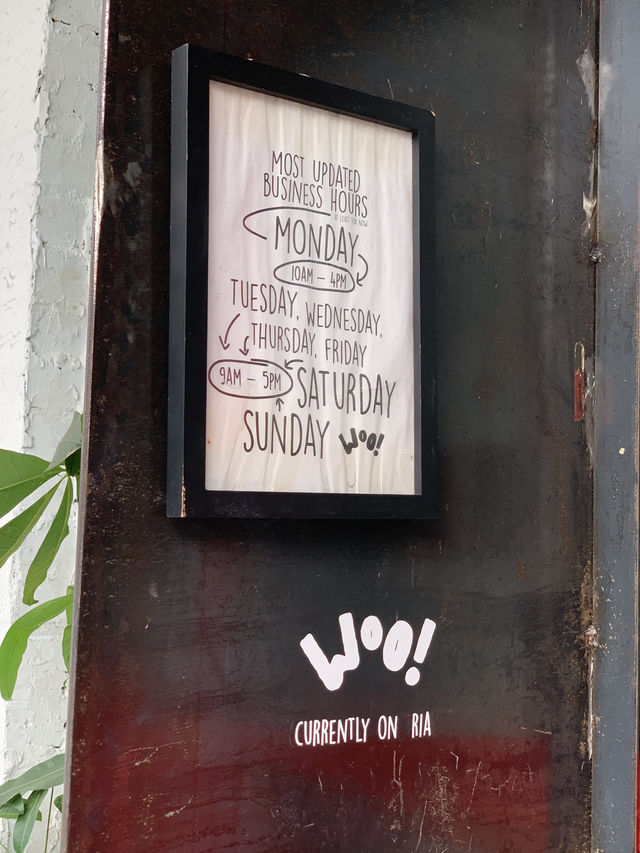 MOST UPDATED
BUSINESS HOURS
AT LEAST FOR NOW
MONDAY
10AM – 4PM
TUESDAY, WEDNESDAY,
THURSDAY, FRIDAY
9AM – 5PM SATURDAY
SUNDAY WOO!
WOO!
CURRENTLY ON RIA